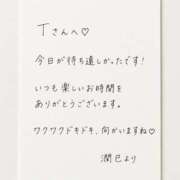 Tさんへ♡
今日が待ち遠しかったです!
いつも楽しいお時間を
ありがとうございます。
ワクワクドキドキ、向かいますね♡
潤巳より